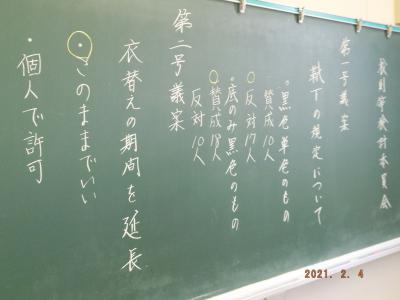 校則等検討委員会
第一号議案
靴下の規定について
・黒色単色のもの
賛成10人
反対17人
・底のみ黒色のもの
賛成18人
反対10人
第二号議案
衣替えの期間を延長
・このままでいい
・個人で許可
2021. 2. 4